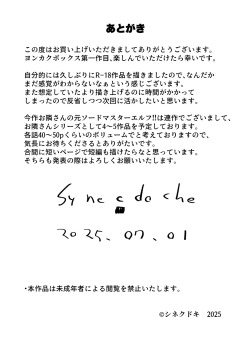 あとがき
この度はお買い上げいただきましてありがとうございます。
ヨンカクボックス第一作目、楽しんでいただけたら幸いです。
自分的には久しぶりにR-18作品を描きましたので、なんだか
まだ感覚がわからないなぁという感じございます。
また想定していたより描き上げるのに時間がかかって
しまったので反省しつつ次回に活かしたいと思います。
今作お隣さんの元ソードマスターエルフ!!は連作でございまして、
お隣さんシリーズとして4〜5作を予定しております。
各話40〜50pくらいのボリュームでと考えておりますので、
気長にお待ちくださるとありがたいです。
合間に短いページで短編も描けたらなと思っています。
そちらも発表の際はよろしくお願いいたします。
Synecdoche
2025.07.01
・本作品は未成年者による閲覧を禁止いたします。
©シネクドキ 2025